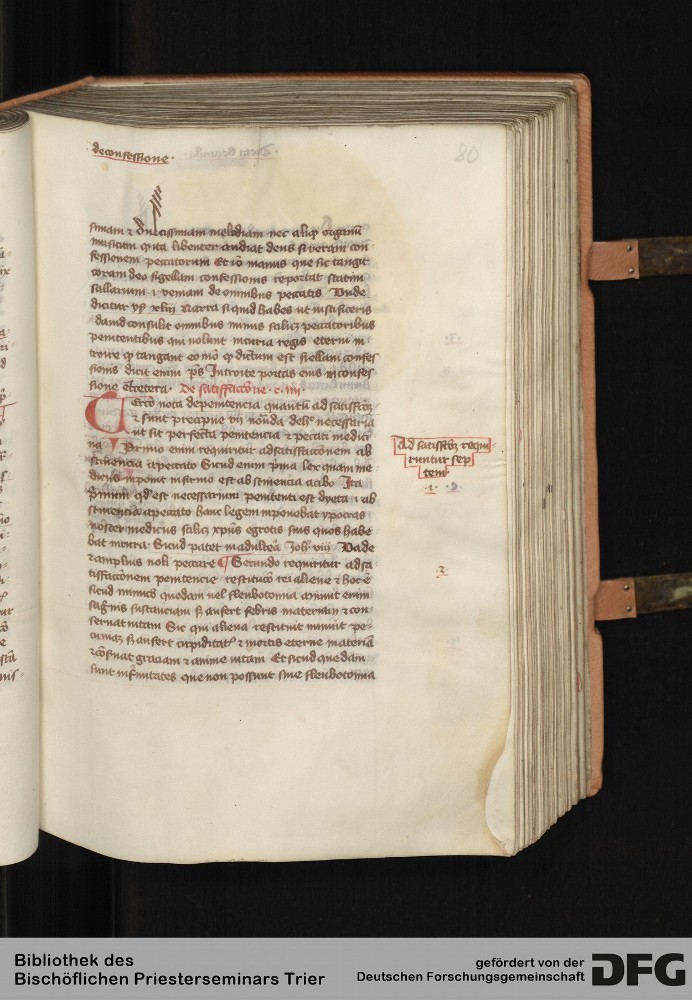 de confessione
80
simam et dulcissimam melodiam nec aliquod organum
musicum quod ita libenter audiat deus si veram con
fessionem peccatorum Et io manus que sic tangit
coram deo sigellam confessionis reportat statim
dicitur ys xliii Narra si quid habes ut iustificeris
david consulit omnibus nimis scilicet peccatoribus
penitentibus qui volunt in curia regis eterni in
troire q tangant eo mo q dictum est confes
sionis dicit enim ps Introite portas eius in confes
sione etcetera De satisfaccione c iiii
Cerco nota de penitencia quantum ad satisfactionem
et sunt precipue vii necessaria
ut sit perfecta penitencia et peccati medici
na Primo enim requiritur ad satisfaccionem ab
stinencia a peccato Sicud enim prima lex quam me
dicus imponit infirmo est abstinencia a cibo Ita
primum quod est necessarium penitenti est dyeta i ab
stinencia a peccato hanc legem imponebat ypocras
noster medicus scilicet xpus egrotis suis quos habe
bat in cura Sicud patet in adultera Joh viii Vade
et amplius noli peccare Secundo requiritur ad sa
tisfaccionem penitencie restitucio rei aliene et hoc e
sicud minucio quedam vel fleubotomia minuit enim
sanguinis sustanciam s aufert febris materiam et con
servat vitam Sic qui aliena restituit minuit pe
cuniam s aufert cupiditatem et mortis eterne materiam
et conservat graciam et anime vitam Et sicud quedam
sunt infirmitates que non possunt sine fleubotomia
Ad satisfactionem requi
runtur sep
tem
.1.
.2.
Bibliothek des
Bischöflichen Priesterseminars Trier
gefördert von der
Deutschen Forschungsgemeinschaft
DFG